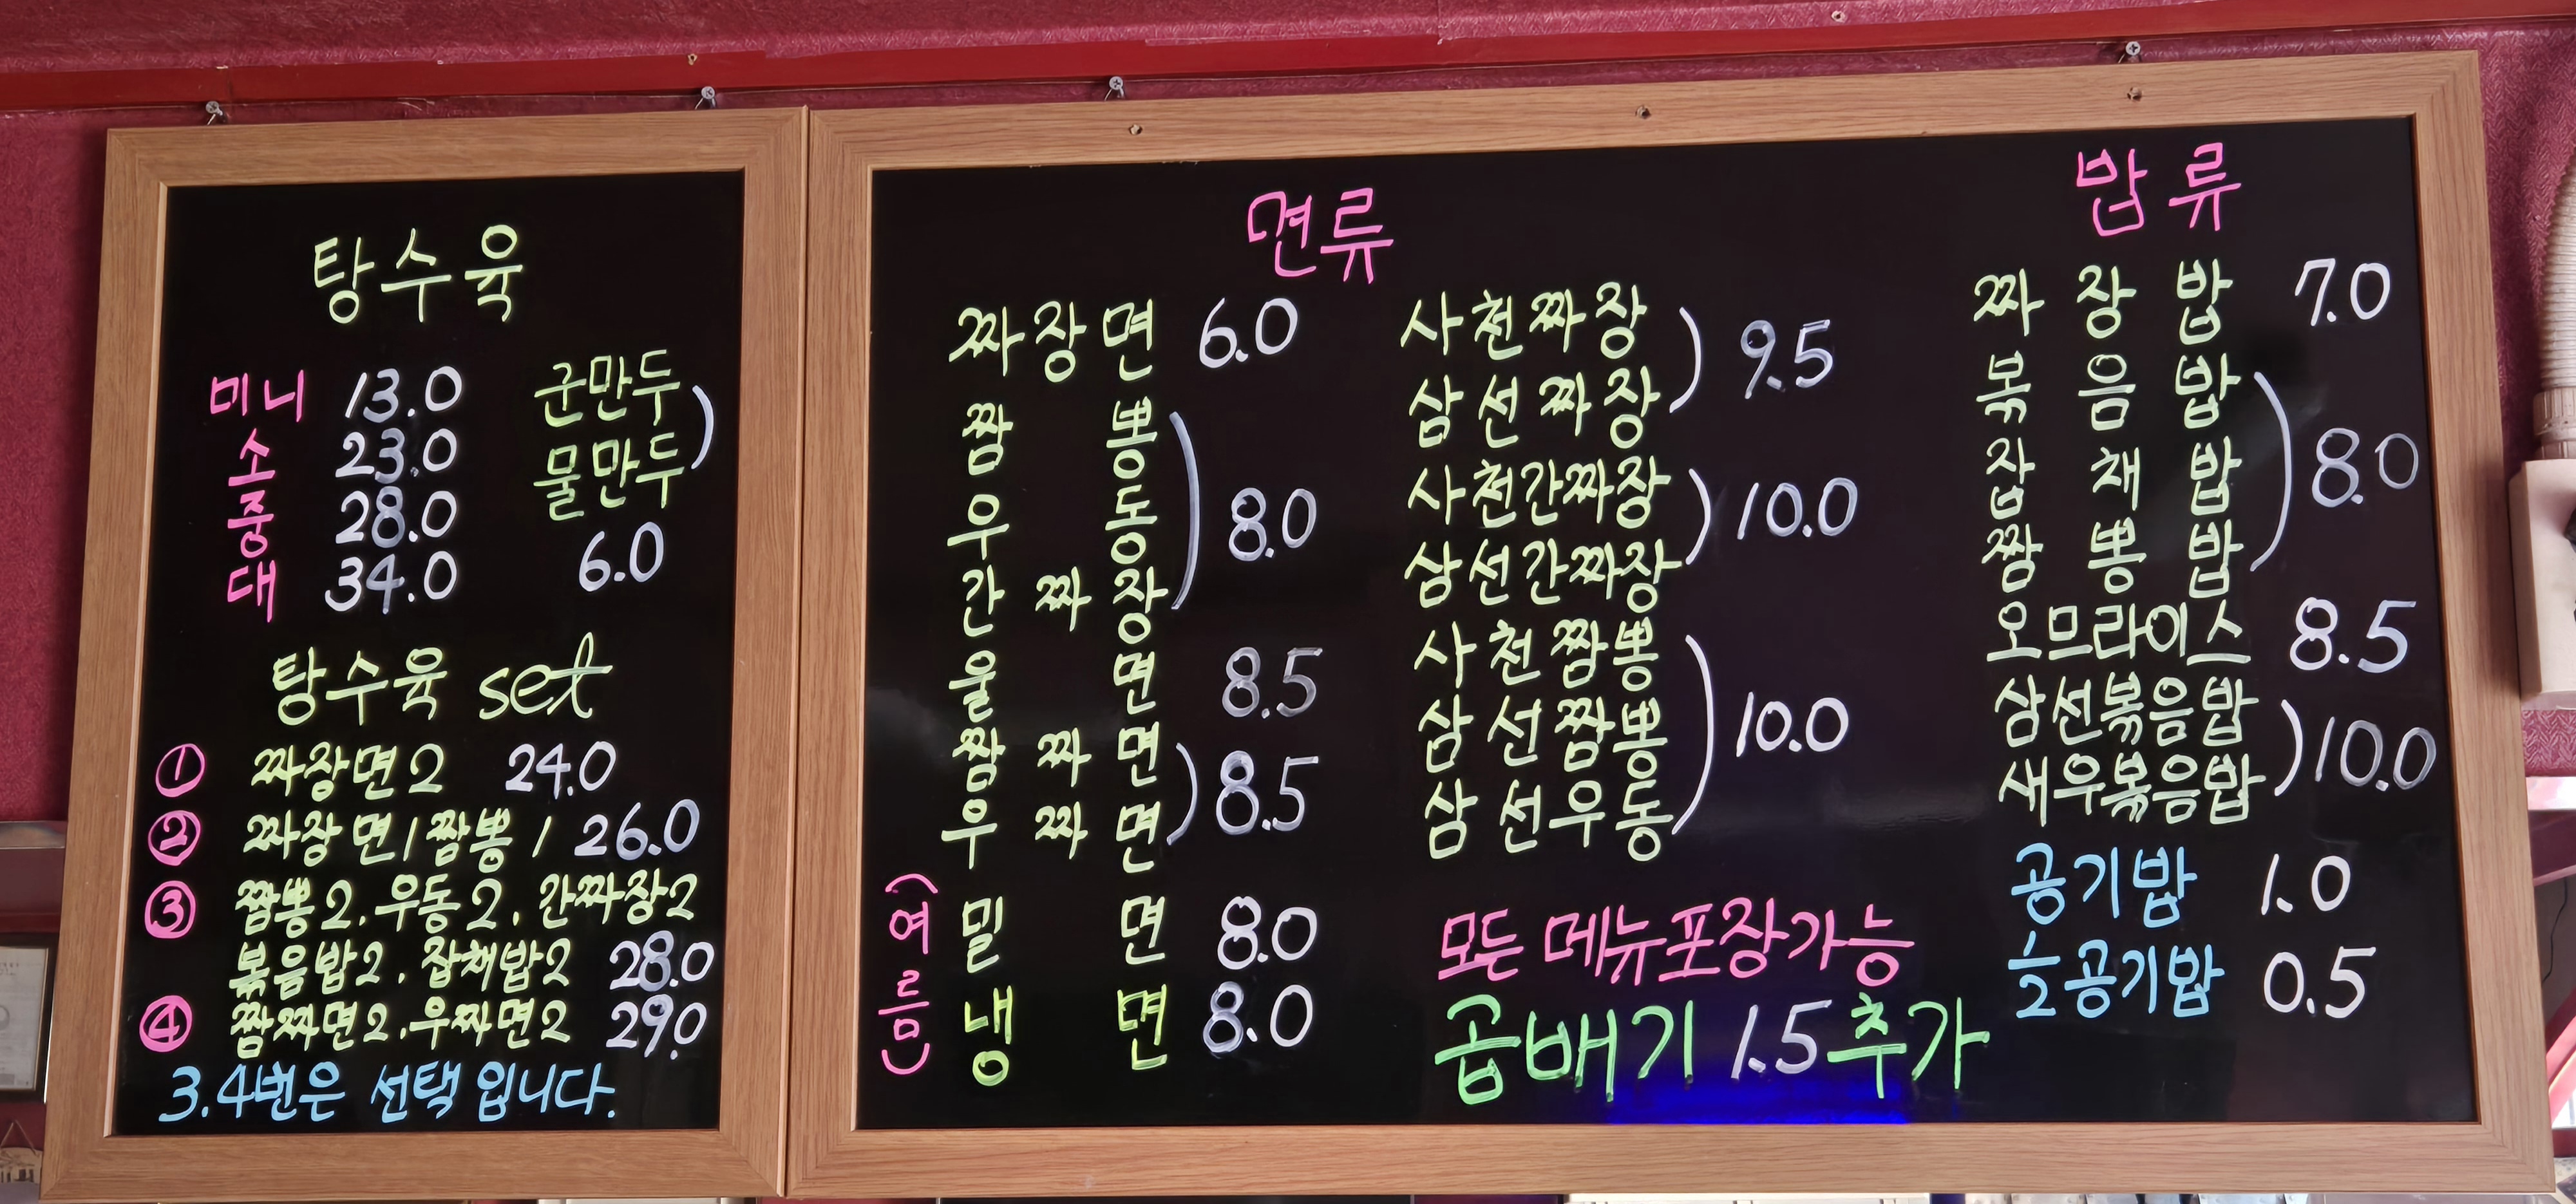 탕수육
미니 13.0
소 23.0
중 28.0
대 34.0
군만두
물만두
6.0
탕수육 set
① 짜장면2 24.0
② 짜장면1짬뽕1 26.0
③ 짬뽕2. 우동2. 간짜장2
볶음밥2. 잡채밥2 28.0
④ 짬짜면2. 우짜면2 29.0
3.4번은 선택입니다.
면류
짜장면 6.0
짬뽕
우동
간짜장
8.0
울면 8.5
짬짜면
우짜면
8.5
(여름)
밀면 8.0
냉면 8.0
사천짜장
삼선짜장
9.5
사천간짜장
삼선간짜장
10.0
사천짬뽕
삼선짬뽕
삼선우동
10.0
모든 메뉴포장가능
곱배기 1.5추가
밥류
짜장밥 7.0
볶음밥
잡채밥
짬뽕밥
8.0
오므라이스 8.5
삼선볶음밥
새우볶음밥
10.0
공기밥 1.0
1/2공기밥 0.5